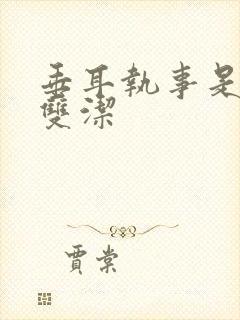 垂耳執事是
雙潔
賈棠